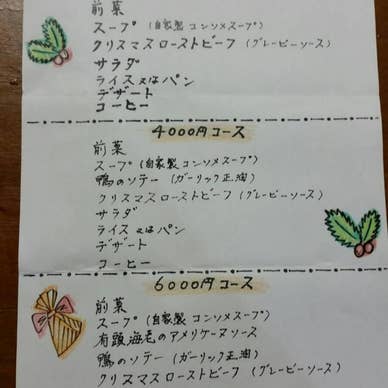 前菜
スープ(自家製 コンソメスープ)
クリスマスローストビーフ(グレービーソース)
サラダ
ライス又はパン
デザート
コーヒー
4000円コース
前菜
スープ(自家製コンソメスープ)
鴨のソテー(ガーリック正油)
クリスマスローストビーフ(グレービーソース)
サラダ
ライス又はパン
デザート
コーヒー
6000円コース
前菜
スープ(自家製コンソメスープ)
有頭海老のアメリケーヌソース
鴨のソテー(ガーリック正油)
クリスマスローストビーフ(グレービーソース)